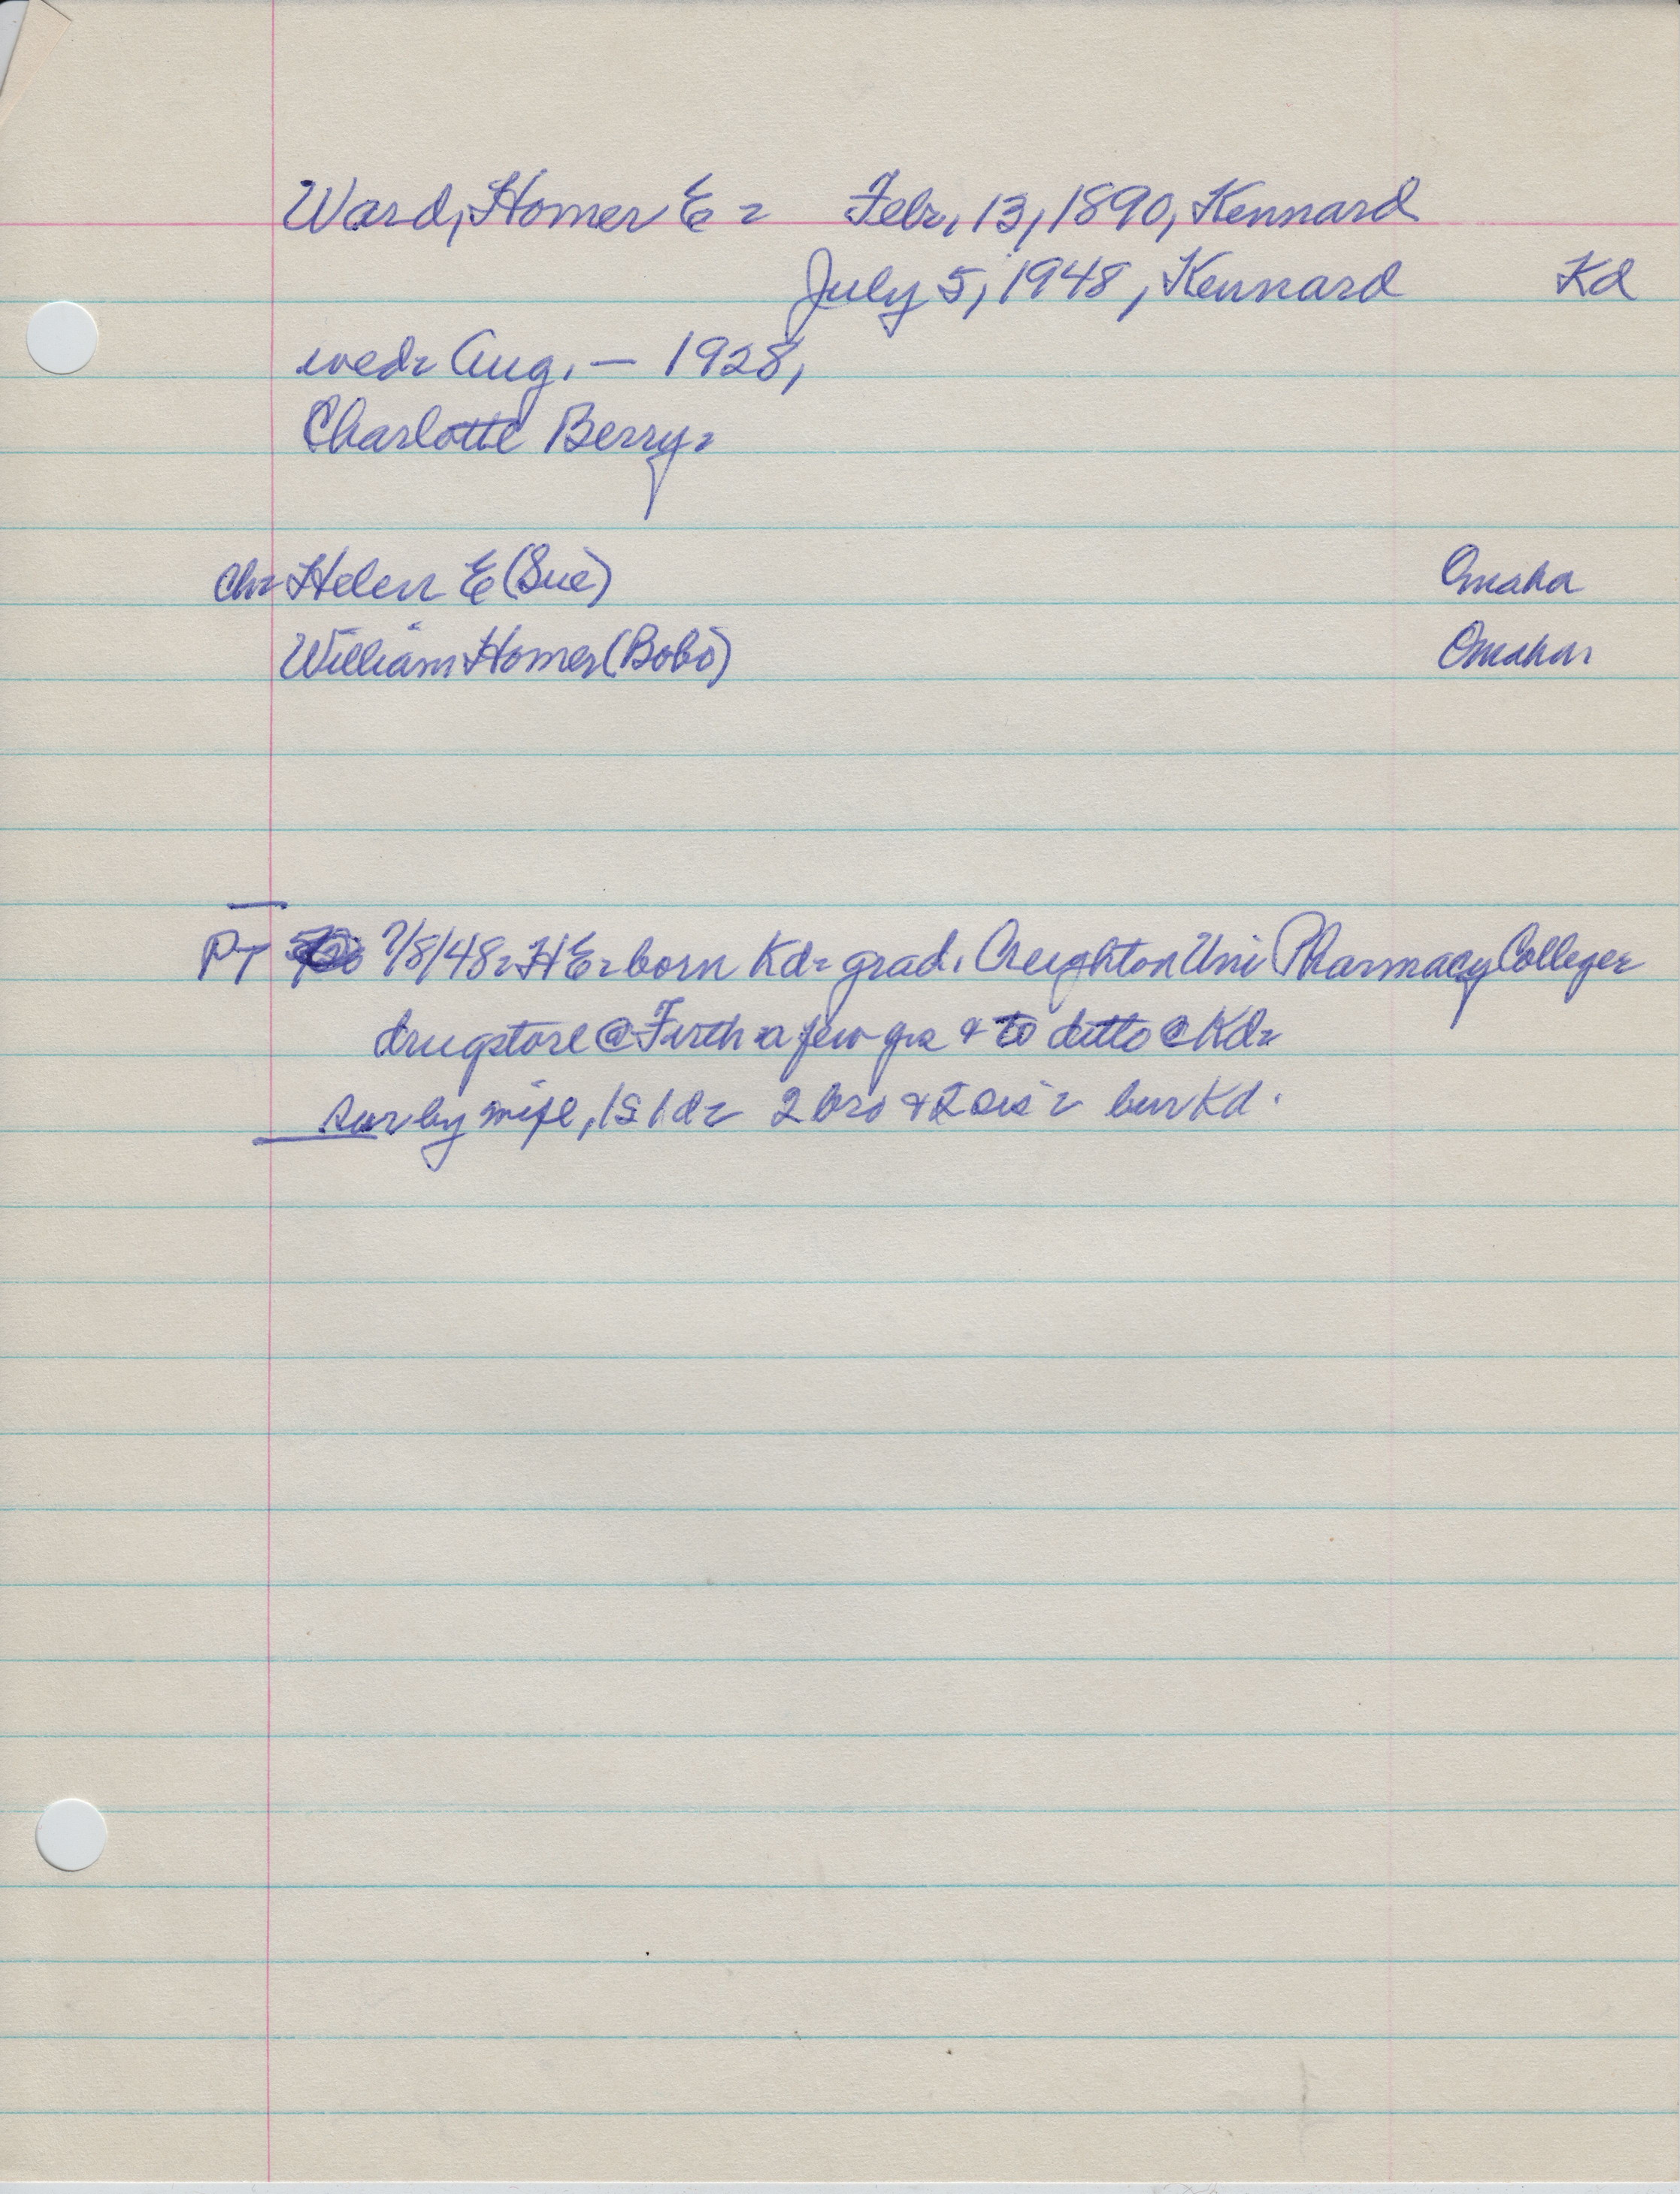 Ward, Homer E - Febr, 13, 1890, Kennard
July 5, 1948, Kennard Kd
wed- Aug. — 1928,
Charlotte Berry-
Ch- Helen E (Sue) Omaha
William Homer (Bobo) Omaha-
PT 7/8/48- HE- born Kd- grad. Creighton Uni Pharmacy College-
drugstore @ Firth a few yrs & to ditto @ Kd-
sur by wife, 1s 1d- 2 bro & 2 sis - bur Kd.